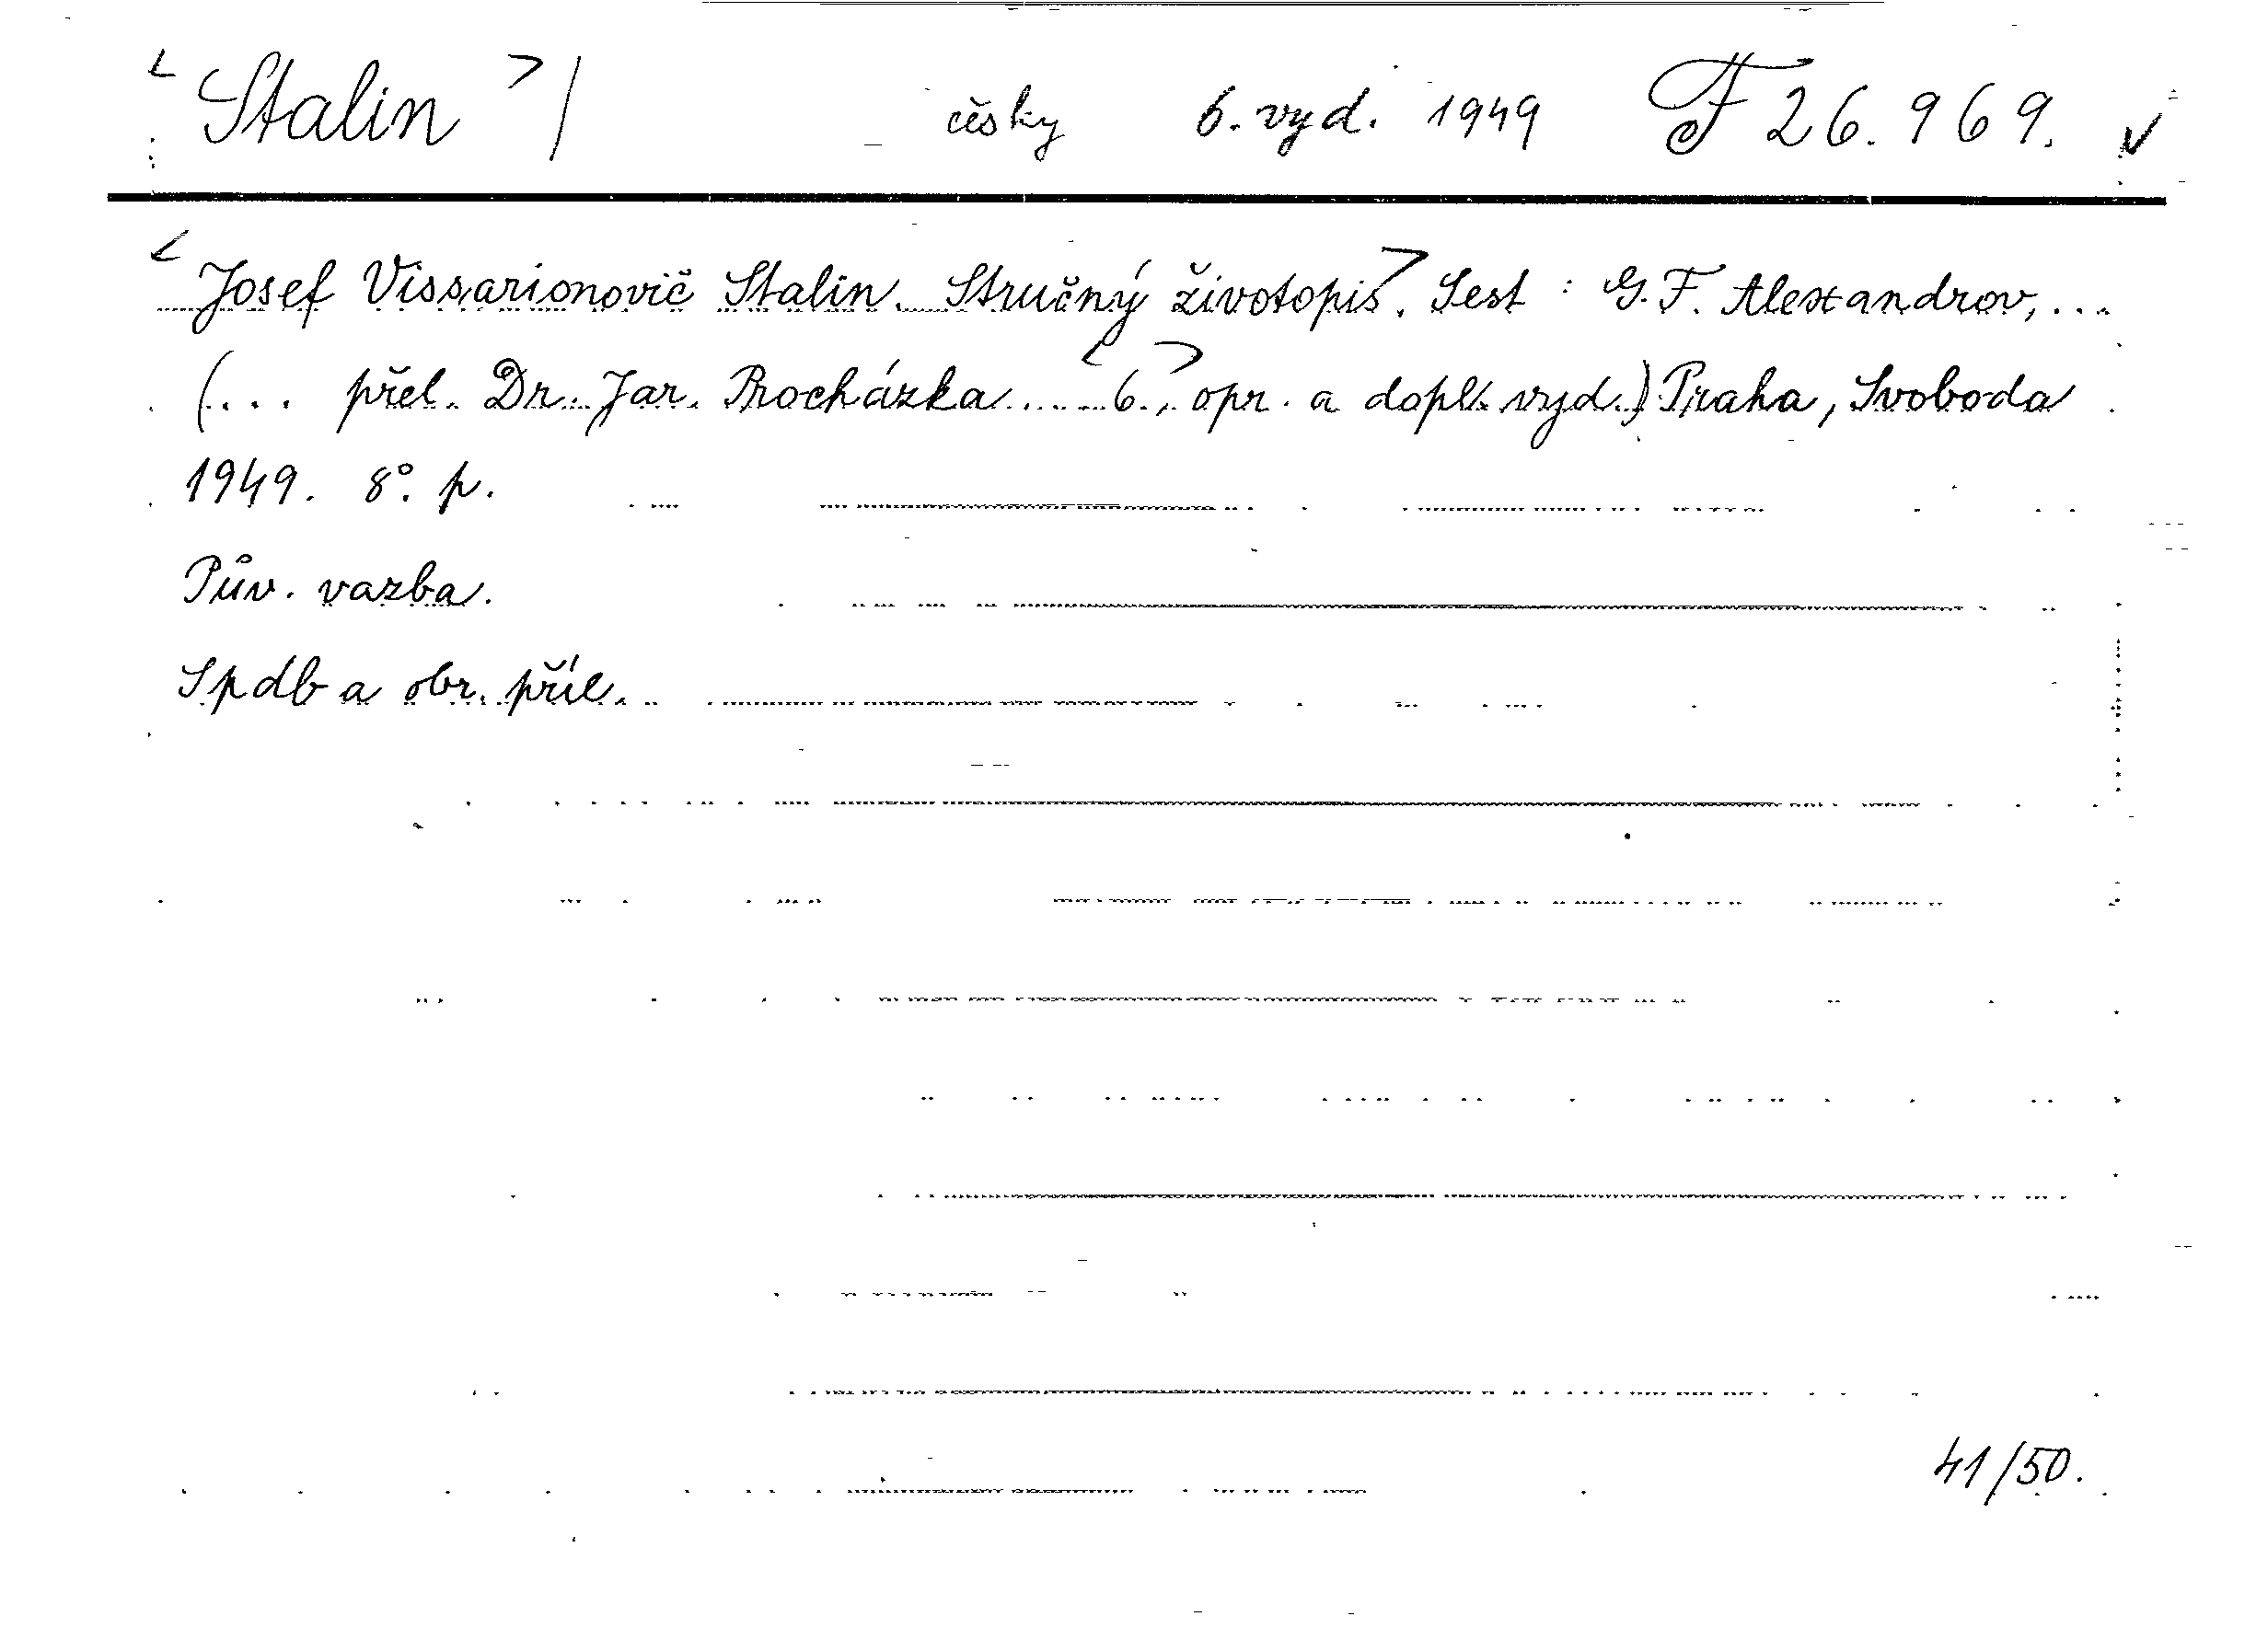 <Stalin>/ česky 6. vyd. 1949 F 26.969. ✓
<Josef Vissarionovič Stalin. Stručný životopis>. Sest : G. F. Alexandrov, ...
(... přel. Dr. Jar. Procházka ..... <6.,> opr. a dopl. vyd.) Praha, Svoboda
1949. 8°. p.
Pův. vazba.
Spdb a obr. příl.
41/50.